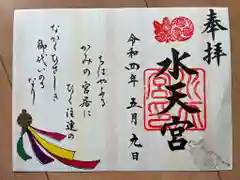 奉拝
水天宮
令和四年五月九日
ちはやふる
かみの宮居に
ひく注連の
なかくひさしき
御代いのる
なり